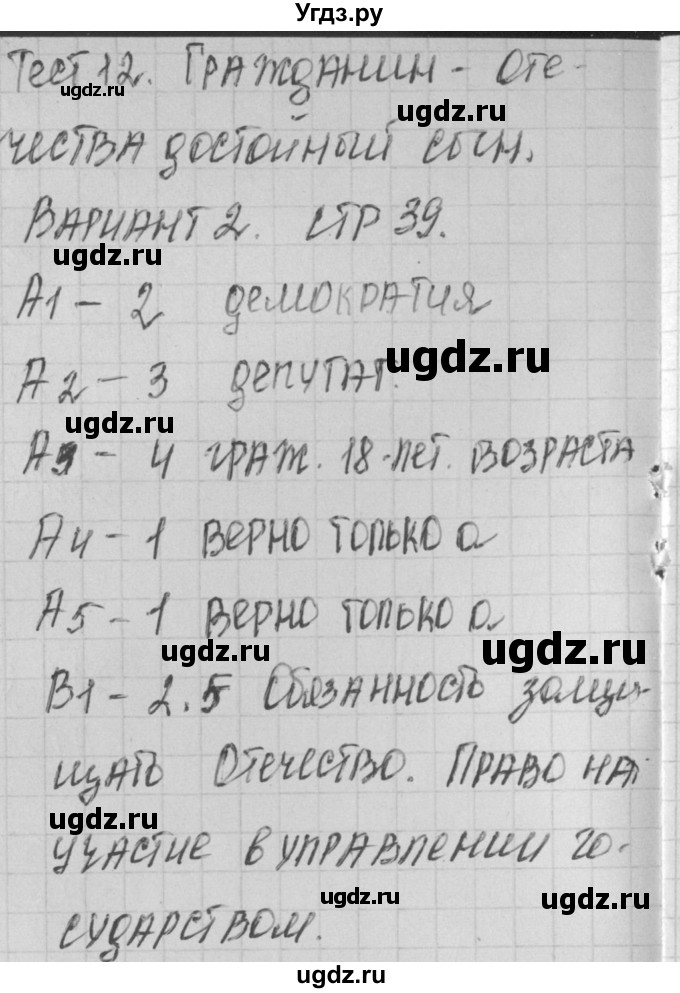 Угдз.ру
Тест 12. Гражданин - Оте-
ugdz.ru
ugdz.ru
чества достойный сын.
Вариант 2. стр 39.
ugdz.ru
А1 - 2 демократия
ugdz.ru
А2 - 3 депутат.
ugdz.ru
А3 - 4 граж. 18-лет. возраста
А4 - 1 верно только а
А5 - 1 верно только а
ugdz.ru
ugdz.ru
В1 - 2.5 Обязанность защи-
щать Отечество. Право на
ugdz.ru
участие в управлении го-
ugdz.ru
ugdz.ru
сударством.
ugdz.ru